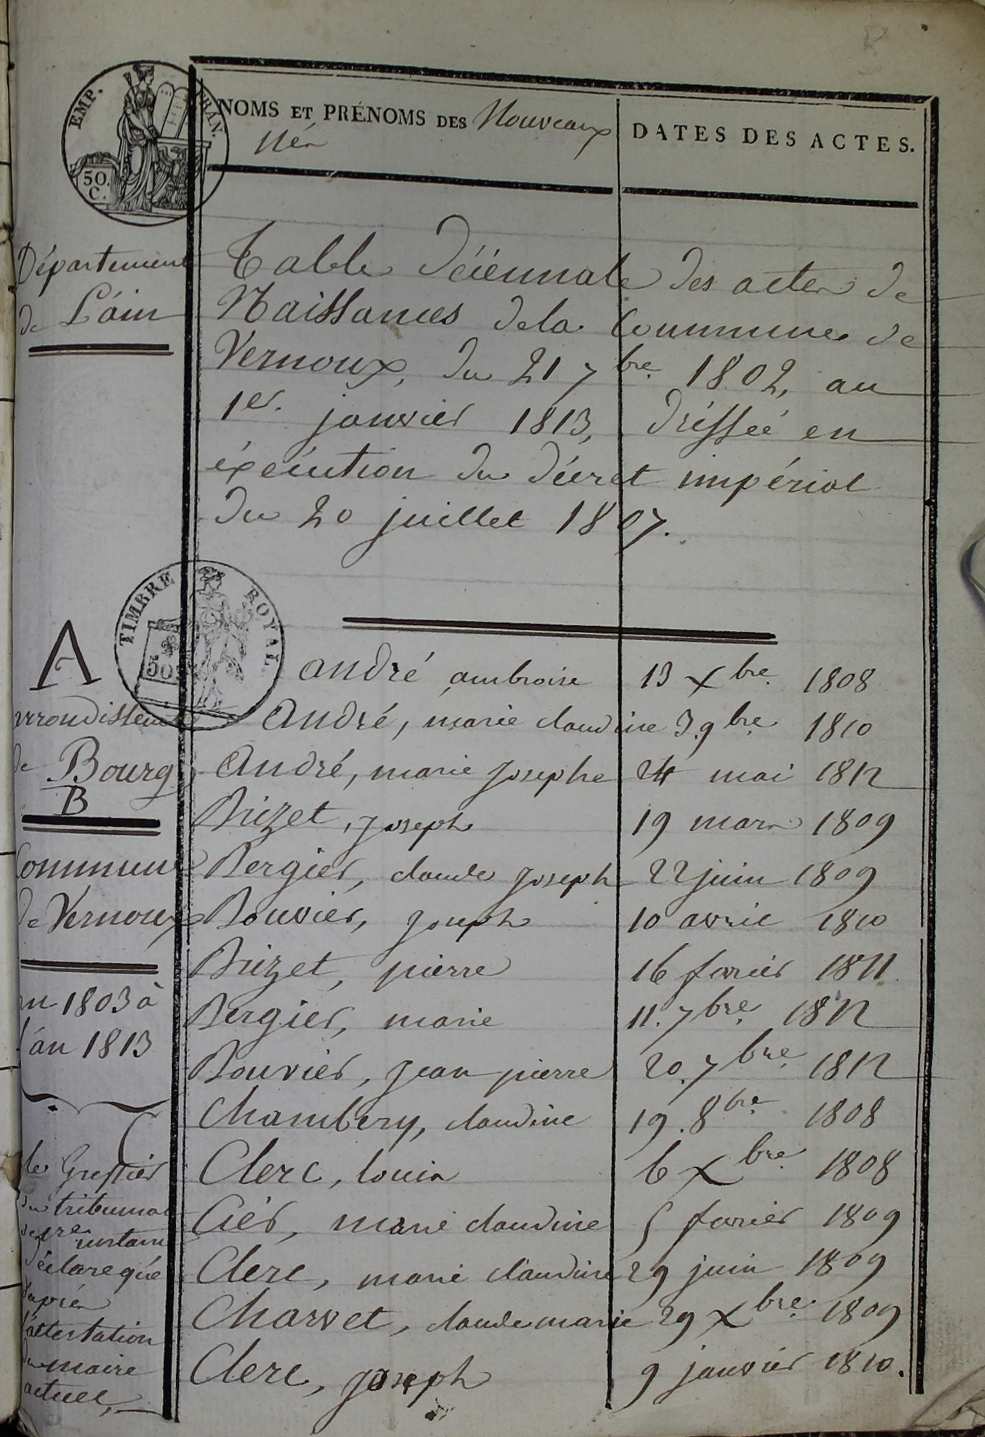 EMP. FRAN.
50 C.
NOMS ET PRÉNOMS DES Nouveaux
Nés
DATES DES ACTES.
Département
de L'ain
Table Décennale des actes de
Naissances de la Commune de
Vernoux, du 21 7bre 1802, au
1er. janvier 1813, dréssée en
éxécution du décret impérial
du 20 juillet 1807.
TIMBRE ROYAL
50
A
arrondissement
de Bourg
B
Commune
de Vernoux
an 1803 à
l'an 1813
C
le Greffier
du tribunal
de 1re instance
déclare que
d'après
l'attestation
du maire
actuel,
André ambroise 13 Xbre. 1808
André, marie claudine 3. 9bre. 1810
André, marie josephe 24 mai 1812
Brizet, joseph 19 mars 1809
Bergier, claude joseph 22 juin 1809
Bouvier, joseph 10 avril 1810
Brizet, pierre 16 fevrier 1811
Bergier, marie 11. 7bre. 1812
Bouvier, jean pierre 20. 7bre. 1812
Chambery, claudine 19. 8bre. 1808
Clerc, louis 6 Xbre. 1808
Ciér, marie claudine 5 fevrier 1809
Clerc, marie claudine 29 juin 1809
Charvet, claude marie 29 Xbre. 1809
Clerc, joseph 9 janvier 1810.